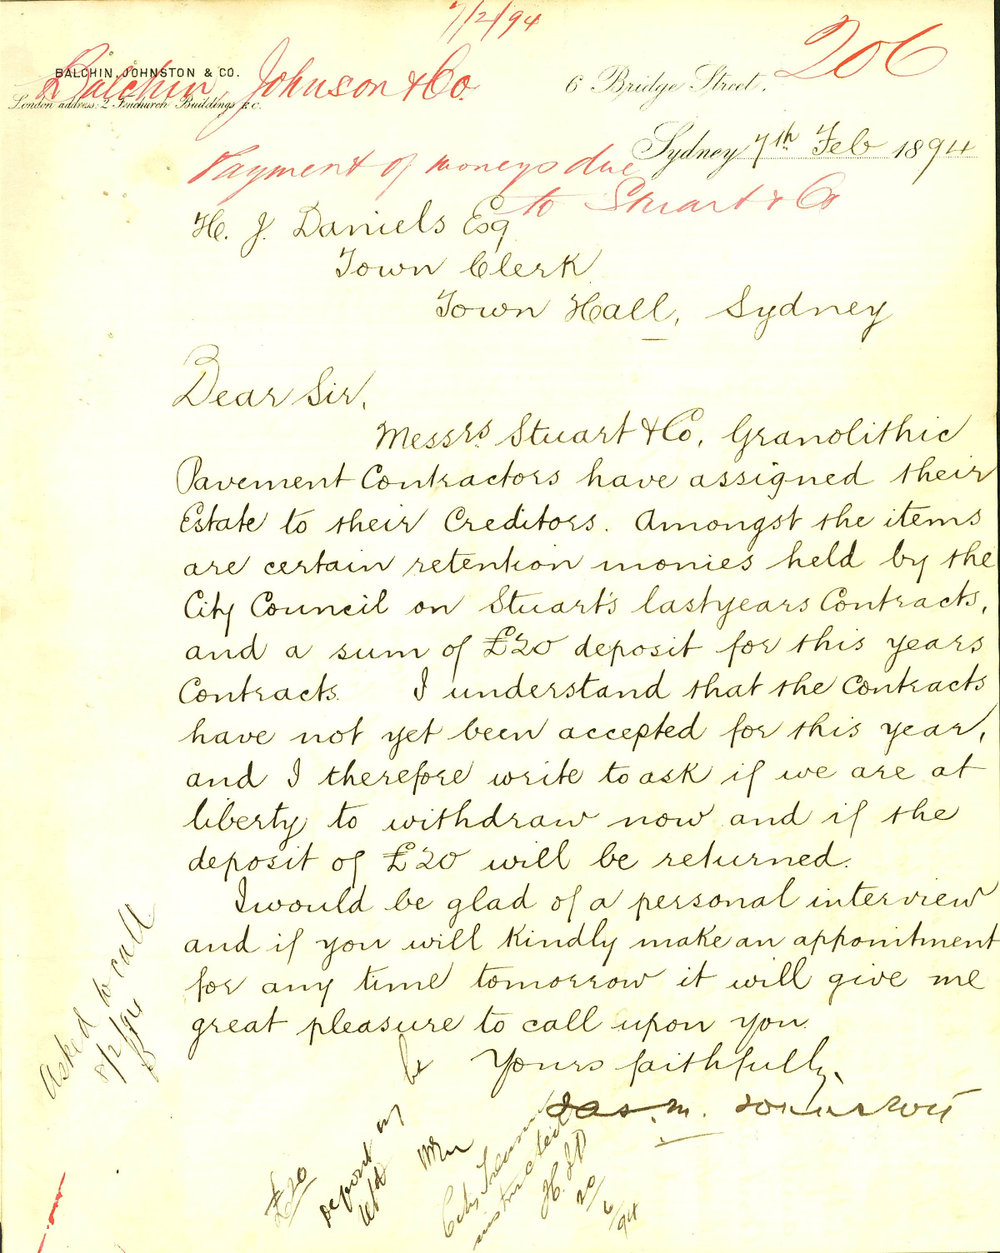 7/2/94
206
BALCHIN, JOHNSTON & CO.
London address: 2 Fenchurch Buildings E.C.
Balchin, Johnson & Co.
6 Bridge Street,
Sydney 7th Feb 1894
Payment of moneys due
to Stuart & Co
H. J. Daniels Esq
Town Clerk
Town Hall, Sydney
Dear Sir,
Messrs Stuart & Co, Granolithic
Pavement Contractors have assigned their
Estate to their Creditors. Amongst the items
are certain retention monies held by the
City Council on Stuart's last years Contracts,
and a sum of £20 deposit for this years
Contracts. I understand that the Contracts
have not yet been accepted for this year,
and I therefore write to ask if we are at
liberty to withdraw now and if the
deposit of £20 will be returned.
I would be glad of a personal interview
and if you will kindly make an appointment
for any time tomorrow it will give me
great pleasure to call upon you.
Yours faithfully,
Jas. M. Johnston
Asked to call
8/2/94
£20
deposit
be
City Treasurer
instructed
H.J.D
20/6/94